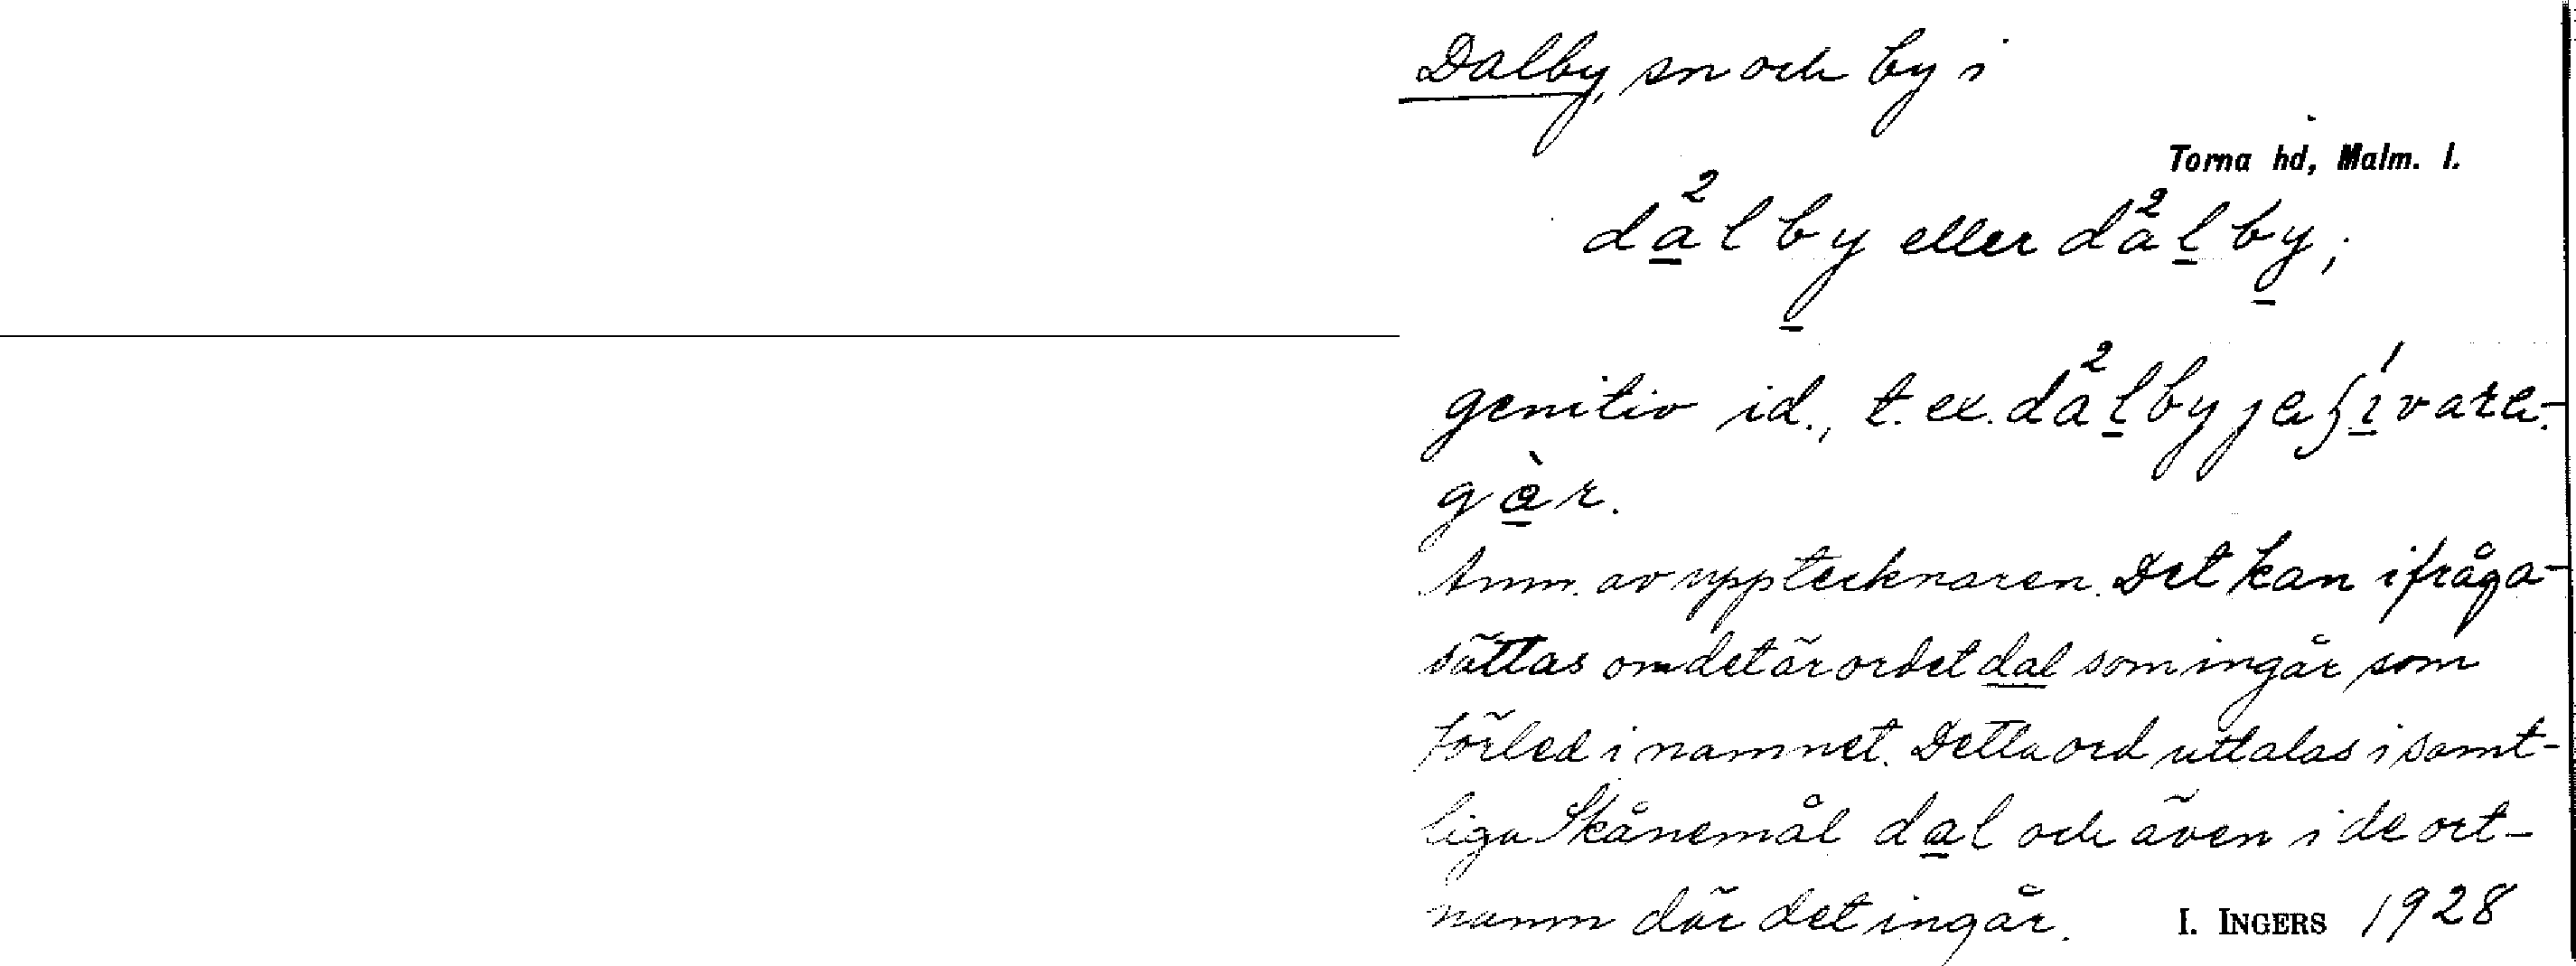 Dalby, sn och by i
Torna hd, Malm. l.
da²lby eller da²lby;
genitiv id., t. ex. da²lby
gàr.
Anm. av upptecknaren. Det kan ifråga-
sättas om det är ordet dal som ingår som
förled i namnet. Detta ord uttalas i samt-
liga Skånemål dal och även i de ort-
namn där det ingår.
I. INGERS 1928